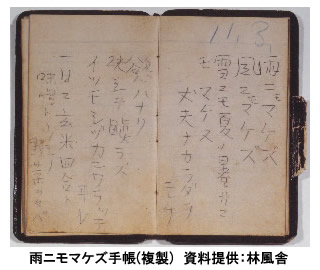 11.3.
雨ニモマケズ
風ニモマケズ
雪ニモ夏ノ暑サニモ
マケヌ
丈夫ナカラダヲ
モチ
慾ハナク
決シテ瞋ラズ
イツモシヅカニワラッテ
ヰル
一日ニ玄米四合ト
味噌ト少シノ
野菜ヲタベ
雨ニモマケズ手帳(複製)　資料提供:林風舎